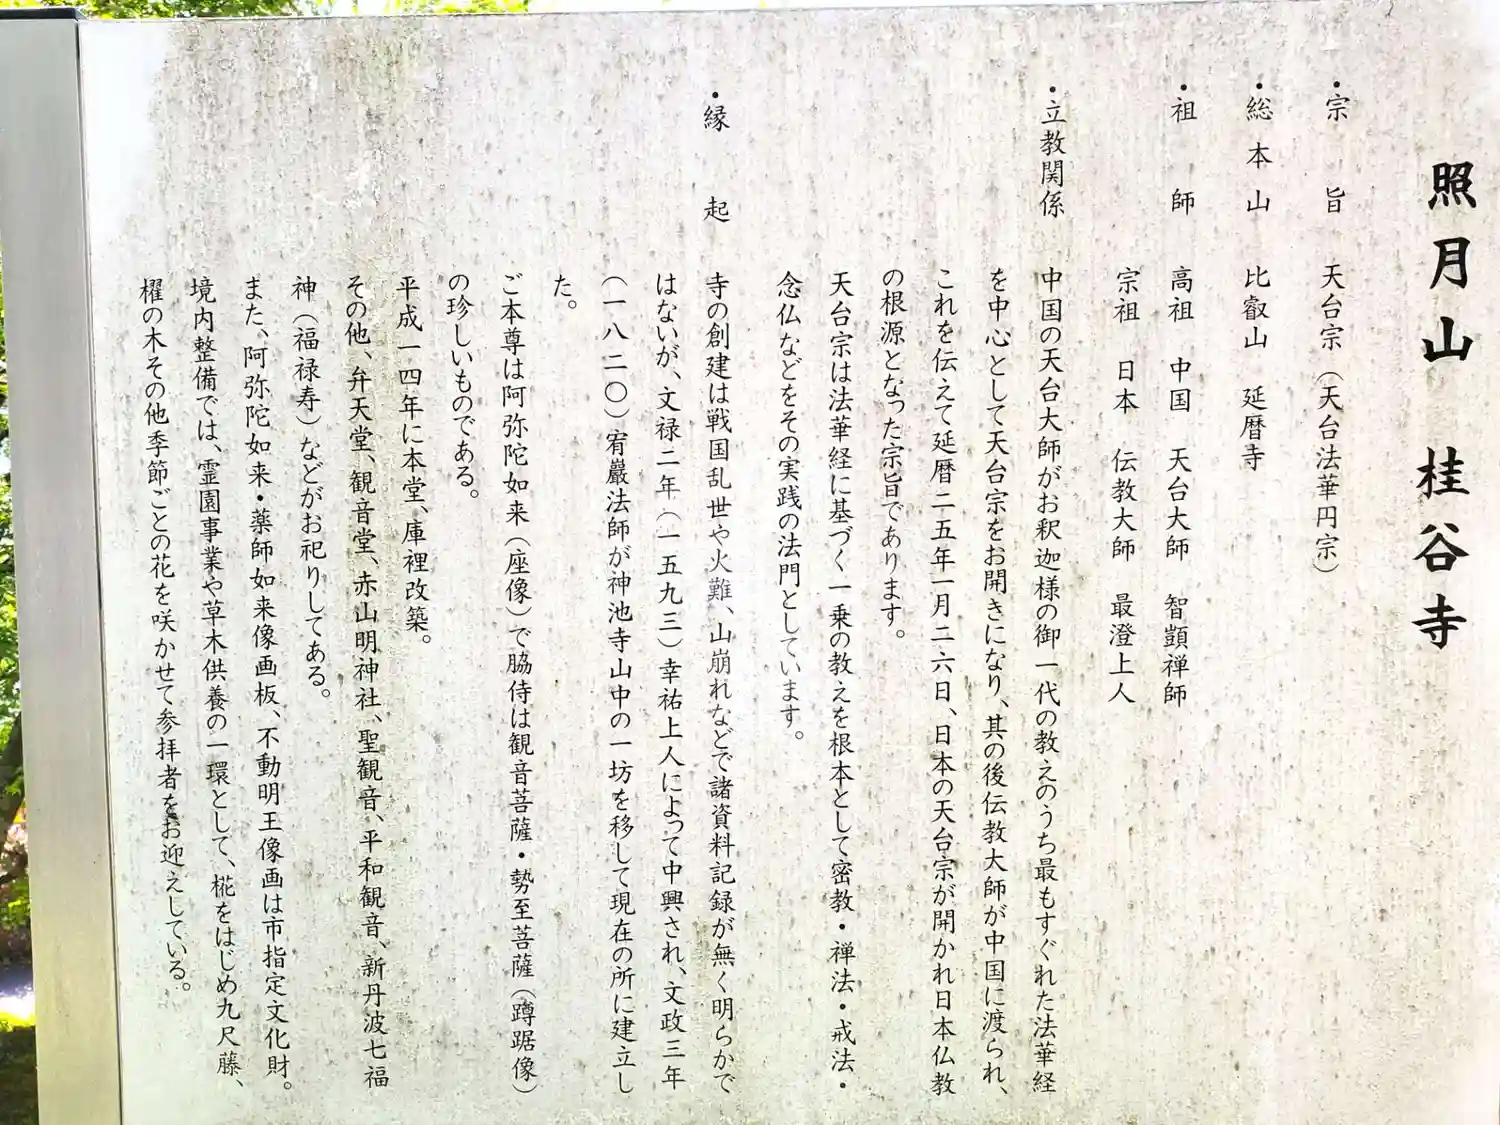 照月山 桂谷寺
・宗旨 天台宗（天台法華円宗）
・総本山 比叡山 延暦寺
・祖師 高祖 中国 天台大師 智顗禅師
宗祖 日本 伝教大師 最澄上人
・立教関係 中国の天台大師がお釈迦様の御一代の教えのうち最もすぐれた法華経
を中心として天台宗をお開きになり、其の後伝教大師が中国に渡られ、
これを伝えて延暦二五年一月二六日、日本の天台宗が開かれ日本仏教
の根源となった宗旨であります。
天台宗は法華経に基づく一乗の教えを根本として密教・禅法・戒法・
念仏などをその実践の法門としています。
・縁起 寺の創建は戦国乱世や火難、山崩れなどで諸資料記録が無く明らかで
はないが、文禄二年（一五九三）幸祐上人によって中興され、文政三年
（一八二〇）宥巖法師が神池寺山中の一坊を移して現在の所に建立し
た。
ご本尊は阿弥陀如来（座像）で脇侍は観音菩薩・勢至菩薩（蹲踞像）
の珍しいものである。
平成一四年に本堂、庫裡改築。
その他、弁天堂、観音堂、赤山明神社、聖観音、平和観音、新丹波七福
神（福禄寿）などがお祀りしてある。
また、阿弥陀如来・薬師如来像画板、不動明王像画は市指定文化財。
境内整備では、霊園事業や草木供養の一環として、椛をはじめ九尺藤、
櫂の木その他季節ごとの花を咲かせて参拝者をお迎えしている。